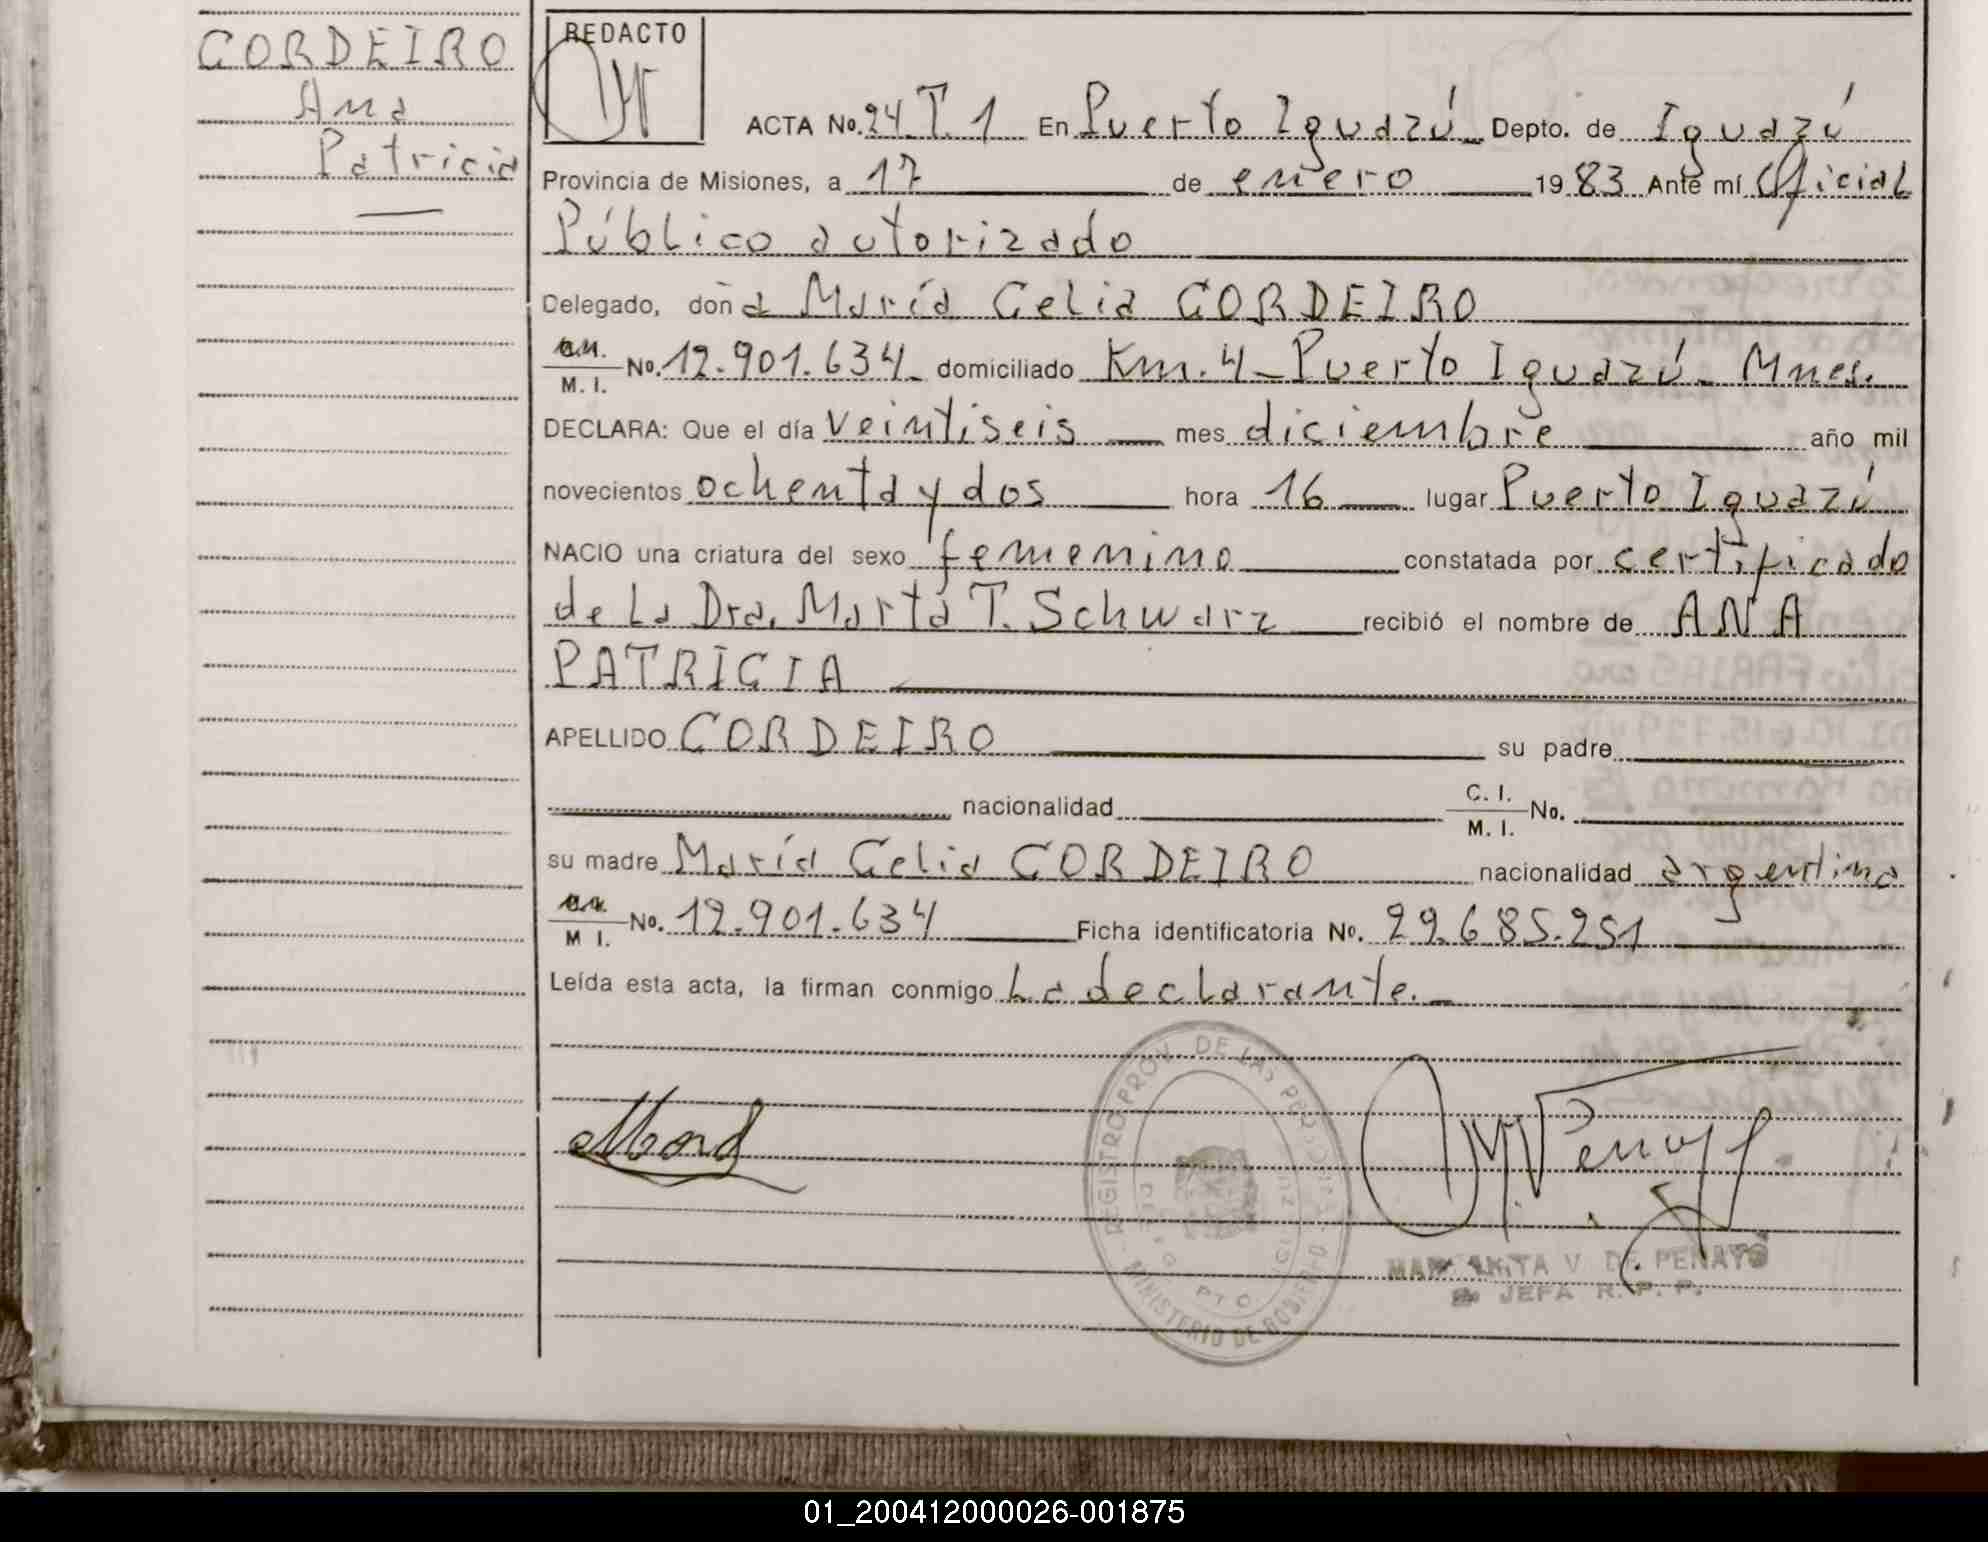 CORDEIRO
Ana
Patricia
REDACTO
ACTA No. 24 T. 1 En Puerto Iguazú Depto. de Iguazú
Provincia de Misiones, a 17 de enero 1983 Ante mí Oficial
Público autorizado
Delegado, doña María Celia CORDEIRO
M. I. No. 12.901.634 domiciliado Km. 4 - Puerto Iguazú - Mnes.
DECLARA: Que el día veintiseis mes diciembre año mil
novecientos ochenta y dos hora 16 lugar Puerto Iguazú
NACIO una criatura del sexo femenino constatada por certificado
de la Dra. Marta T. Schwarz recibió el nombre de ANA
PATRICIA
APELLIDO CORDEIRO su padre
nacionalidad C. I. / M. I. No.
su madre María Celia CORDEIRO nacionalidad argentina
M I. No. 12.901.634 Ficha identificatoria No. 29.685.251
Leída esta acta, la firman conmigo la declarante.
REGISTRO PROV. DE LAS PERSONAS
MINISTERIO DE GOBIERNO
V. DE PENAYO
JEFA R. P. P.
01_200412000026-001875